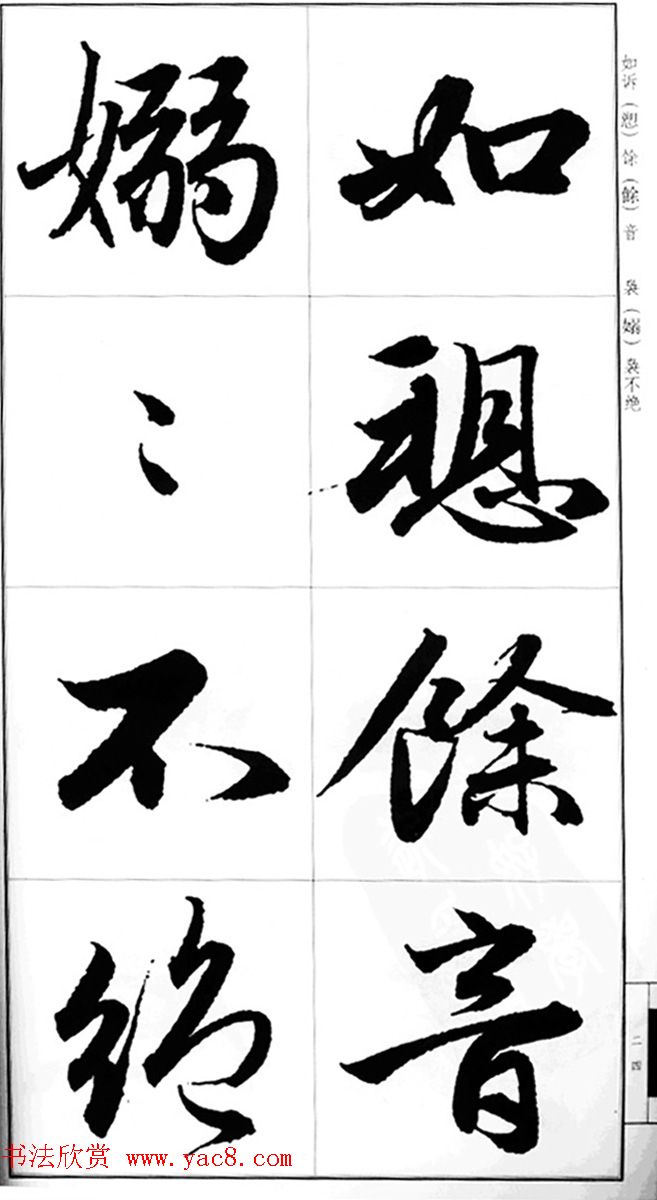 如愬餘音
嫋〻不絕
如诉（愬）馀（餘）音 袅（嫋）袅不绝
二四
书法欣赏 www.yac8.com